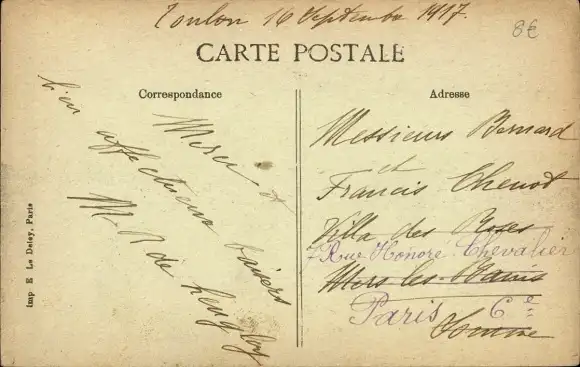 Toulon 16 Septembre 1917.
8€
CARTE POSTALE
Correspondance
Adresse
Merci et
bien affectueux baisers
M. de
Messieurs Bernard
et
Francis Chenot
Villa des Roses
7 Rue Honoré Chevalier
Mers les Bains
Paris 6e
Somme
Imp E Le Deley, Paris